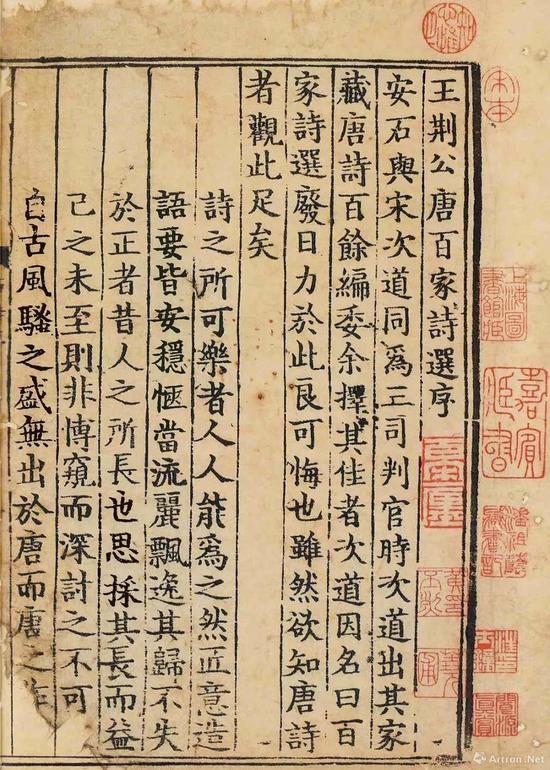 王荊公唐百家詩選序
安石與宋次道同爲三司判官時次道出其家
藏唐詩百餘編委余擇其佳者次道因名曰百
家詩選廢日力於此良可悔也雖然欲知唐詩
者觀此足矣
詩之所可樂者人人能爲之然匠意造
語要皆安穩愜當流麗飄逸其歸不失
於正者昔人之所長也思採其長而益
己之未至則非博窺而深討之不可
自古風騷之盛無出於唐而唐之作
宋本
上海圖書館藏
潘祖蔭藏書記
閬源真賞
Artron.Net